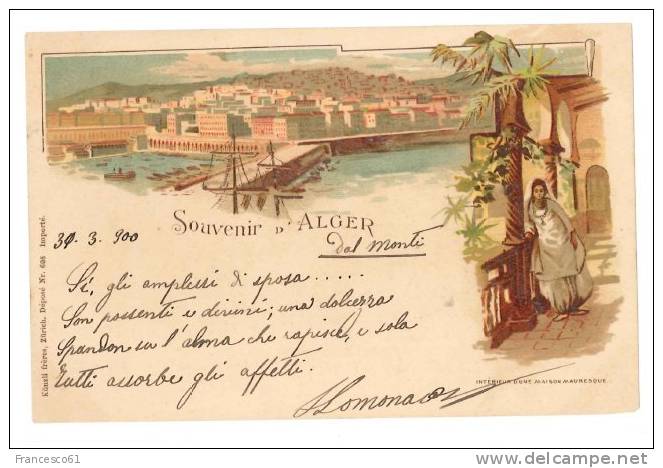 Souvenir D'ALGER
30. 3. 900
dal Monti
Sì, gli amplessi di sposa .....
Son possenti e divini; una dolcezza
Spandon su l'alma che rapisce, e sola
Tutti assorbe gli affetti.
Lomonaco
INTERIEUR D'UNE MAISON MAURESQUE.
Künzli frères, Zürich. Déposé Nr. 608 Importé.
Francesco61
delcampe.net